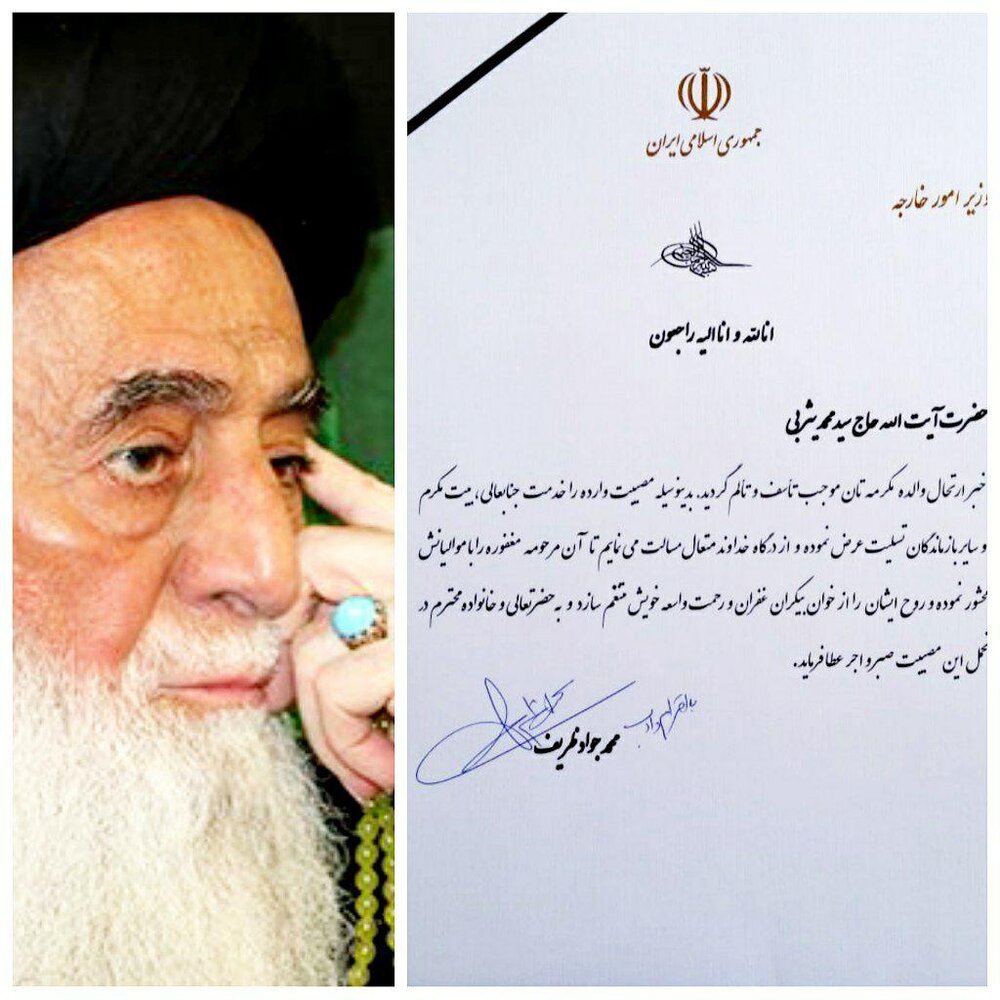 جمهوری اسلامی ایران
وزیر امور خارجه
انالله و انا الیه راجعون
حضرت آیت الله حاج سید محمد یثربی
خبر ارتحال والده مکرمه تان موجب تأسف و تألم گردید. بدینوسیله مصیبت وارده را خدمت جنابعالی، بیت مکرم
و سایر بازماندگان تسلیت عرض نموده و از درگاه خداوند متعال مسالت می نمایم تا آن مرحومه مغفوره را با موالیانش
محشور نموده و روح ایشان را از خوان بیکران غفران و رحمت واسعه خویش متنعم سازد و به حضرتعالی و خانواده محترم در
تحمل این مصیبت صبر و اجر عطا فرماید.
محمد جواد ظریف